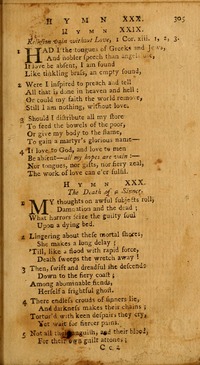 HYMN XXX. 305
HYMN XXIX.
Religion vain without Love, 1 Cor. xiii. 1, 2, 3.
1 HAD I the tongues of Greeks and Jews,
And nobler speech than angels use,
If love be absent, I am found
Like tinkling brass, an empty sound,
2 Were I inspired to preach and tell
All that is done in heaven and hell;
Or could my faith the world remove,
Still I am nothing, without love.
3 Should I distribute all my store
To feed the bowels of the poor,
Or give my body to the flame,
To gain a martyr's glorious name—
4 If love to God, and love to men
Be absent—all my hopes are vain:—
Nor tongues, nor gifts, nor fiery zeal,
The work of love can e'er fulfil.
HYMN XXX.
The Death of a Sinner.
1 MY thoughts on awful subjects roll,
Damnation and the dead;
What horrors seize the guilty soul
Upon a dying bed.
2 Lingering about these mortal shores,
She makes a long delay;
'Till, like a flood with rapid force,
Death sweeps the wretch away!
3 Then, swift and dreadful she descends
Down to the fiery coast;
Among abominable fiends,
Herself a frightful ghost.
4 There endless crouds of sinners lie,
And darkness makes their chains;
Tortur'd with keen despair they cry,
Yet wait for fiercer pains.
5 Not all their anguish, and their blood,
For their own guilt attones;
C c 2